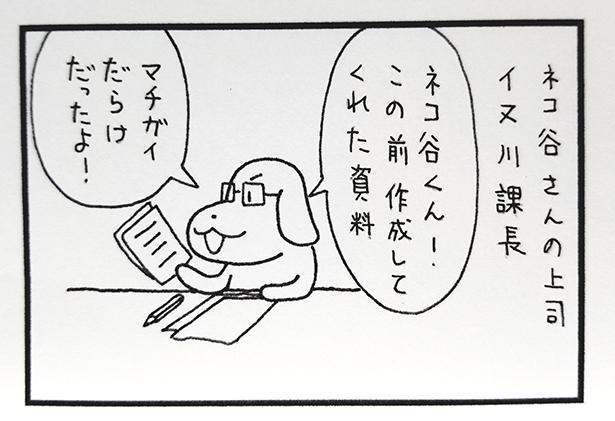 ネコ谷さんの上司
イヌ川課長
ネコ谷くん！
この前作成して
くれた資料
マチガイ
だらけ
だったよ！